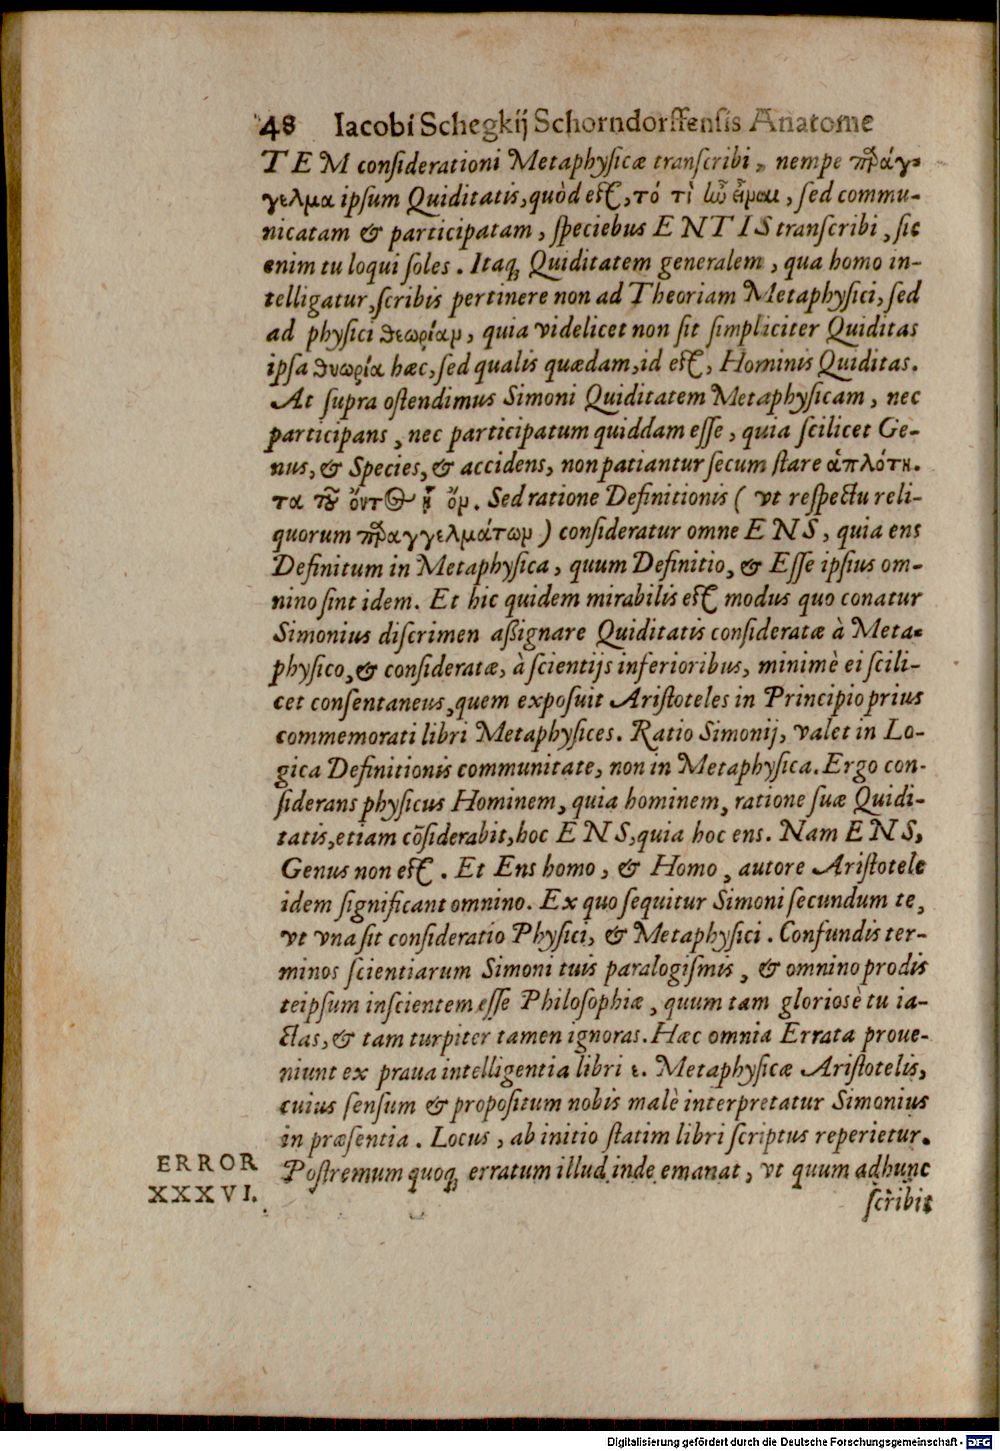 48 Iacobi Schegkij Schorndorffensis Anatome
TEM considerationi Metaphysicæ transcribi, nempe πράγ-
γελμα ipsum Quiditatis, quòd est, τό τὶ ὦ εἶναι, sed commu-
nicatam & participatam, speciebus ENTIS transcribi, sic
enim tu loqui soles. Itaq; Quiditatem generalem, qua homo in-
telligatur, scribis pertinere non ad Theoriam Metaphysici, sed
ad physici θεωρίαν, quia videlicet non sit simpliciter Quiditas
ipsa θυωρία hæc, sed qualis quædam, id est, Hominis Quiditas.
At supra ostendimus Simoni Quiditatem Metaphysicam, nec
participans, nec participatum quiddam esse, quia scilicet Ge-
nus, & Species, & accidens, non patiantur secum stare ἁπλότη-
τα τοῦ ὄντος ᾗ ὄν. Sed ratione Definitionis (vt respectu reli-
quorum πραγγελμάτων) consideratur omne ENS, quia ens
Definitum in Metaphysica, quum Definitio, & Esse ipsius om-
nino sint idem. Et hic quidem mirabilis est modus quo conatur
Simonius discrimen aßignare Quiditatis consideratæ à Meta-
physico, & consideratæ, à scientijs inferioribus, minimè ei scili-
cet consentaneus, quem exposuit Aristoteles in Principio prius
commemorati libri Metaphysices. Ratio Simonij, valet in Lo-
gica Definitionis communitate, non in Metaphysica. Ergo con-
siderans physicus Hominem, quia hominem, ratione suæ Quidi-
tatis, etiam cõsiderabit, hoc ENS, quia hoc ens. Nam ENS,
Genus non est. Et Ens homo, & Homo, autore Aristotele
idem significant omnino. Ex quo sequitur Simoni secundum te,
vt vna sit consideratio Physici, & Metaphysici. Confundis ter-
minos scientiarum Simoni tuis paralogismis, & omnino prodis
teipsum inscientem esse Philosophiæ, quum tam gloriosè tu ia-
ctas, & tam turpiter tamen ignoras. Hæc omnia Errata proue-
niunt ex praua intelligentia libri ε. Metaphysicæ Aristotelis,
cuius sensum & propositum nobis malè interpretatur Simonius
in præsentia. Locus, ab initio statim libri scriptus reperietur.
ERROR
XXXVI.
Postremum quoq; erratum illud inde emanat, vt quum adhunc
scribit
Digitalisierung gefördert durch die Deutsche Forschungsgemeinschaft - DFG